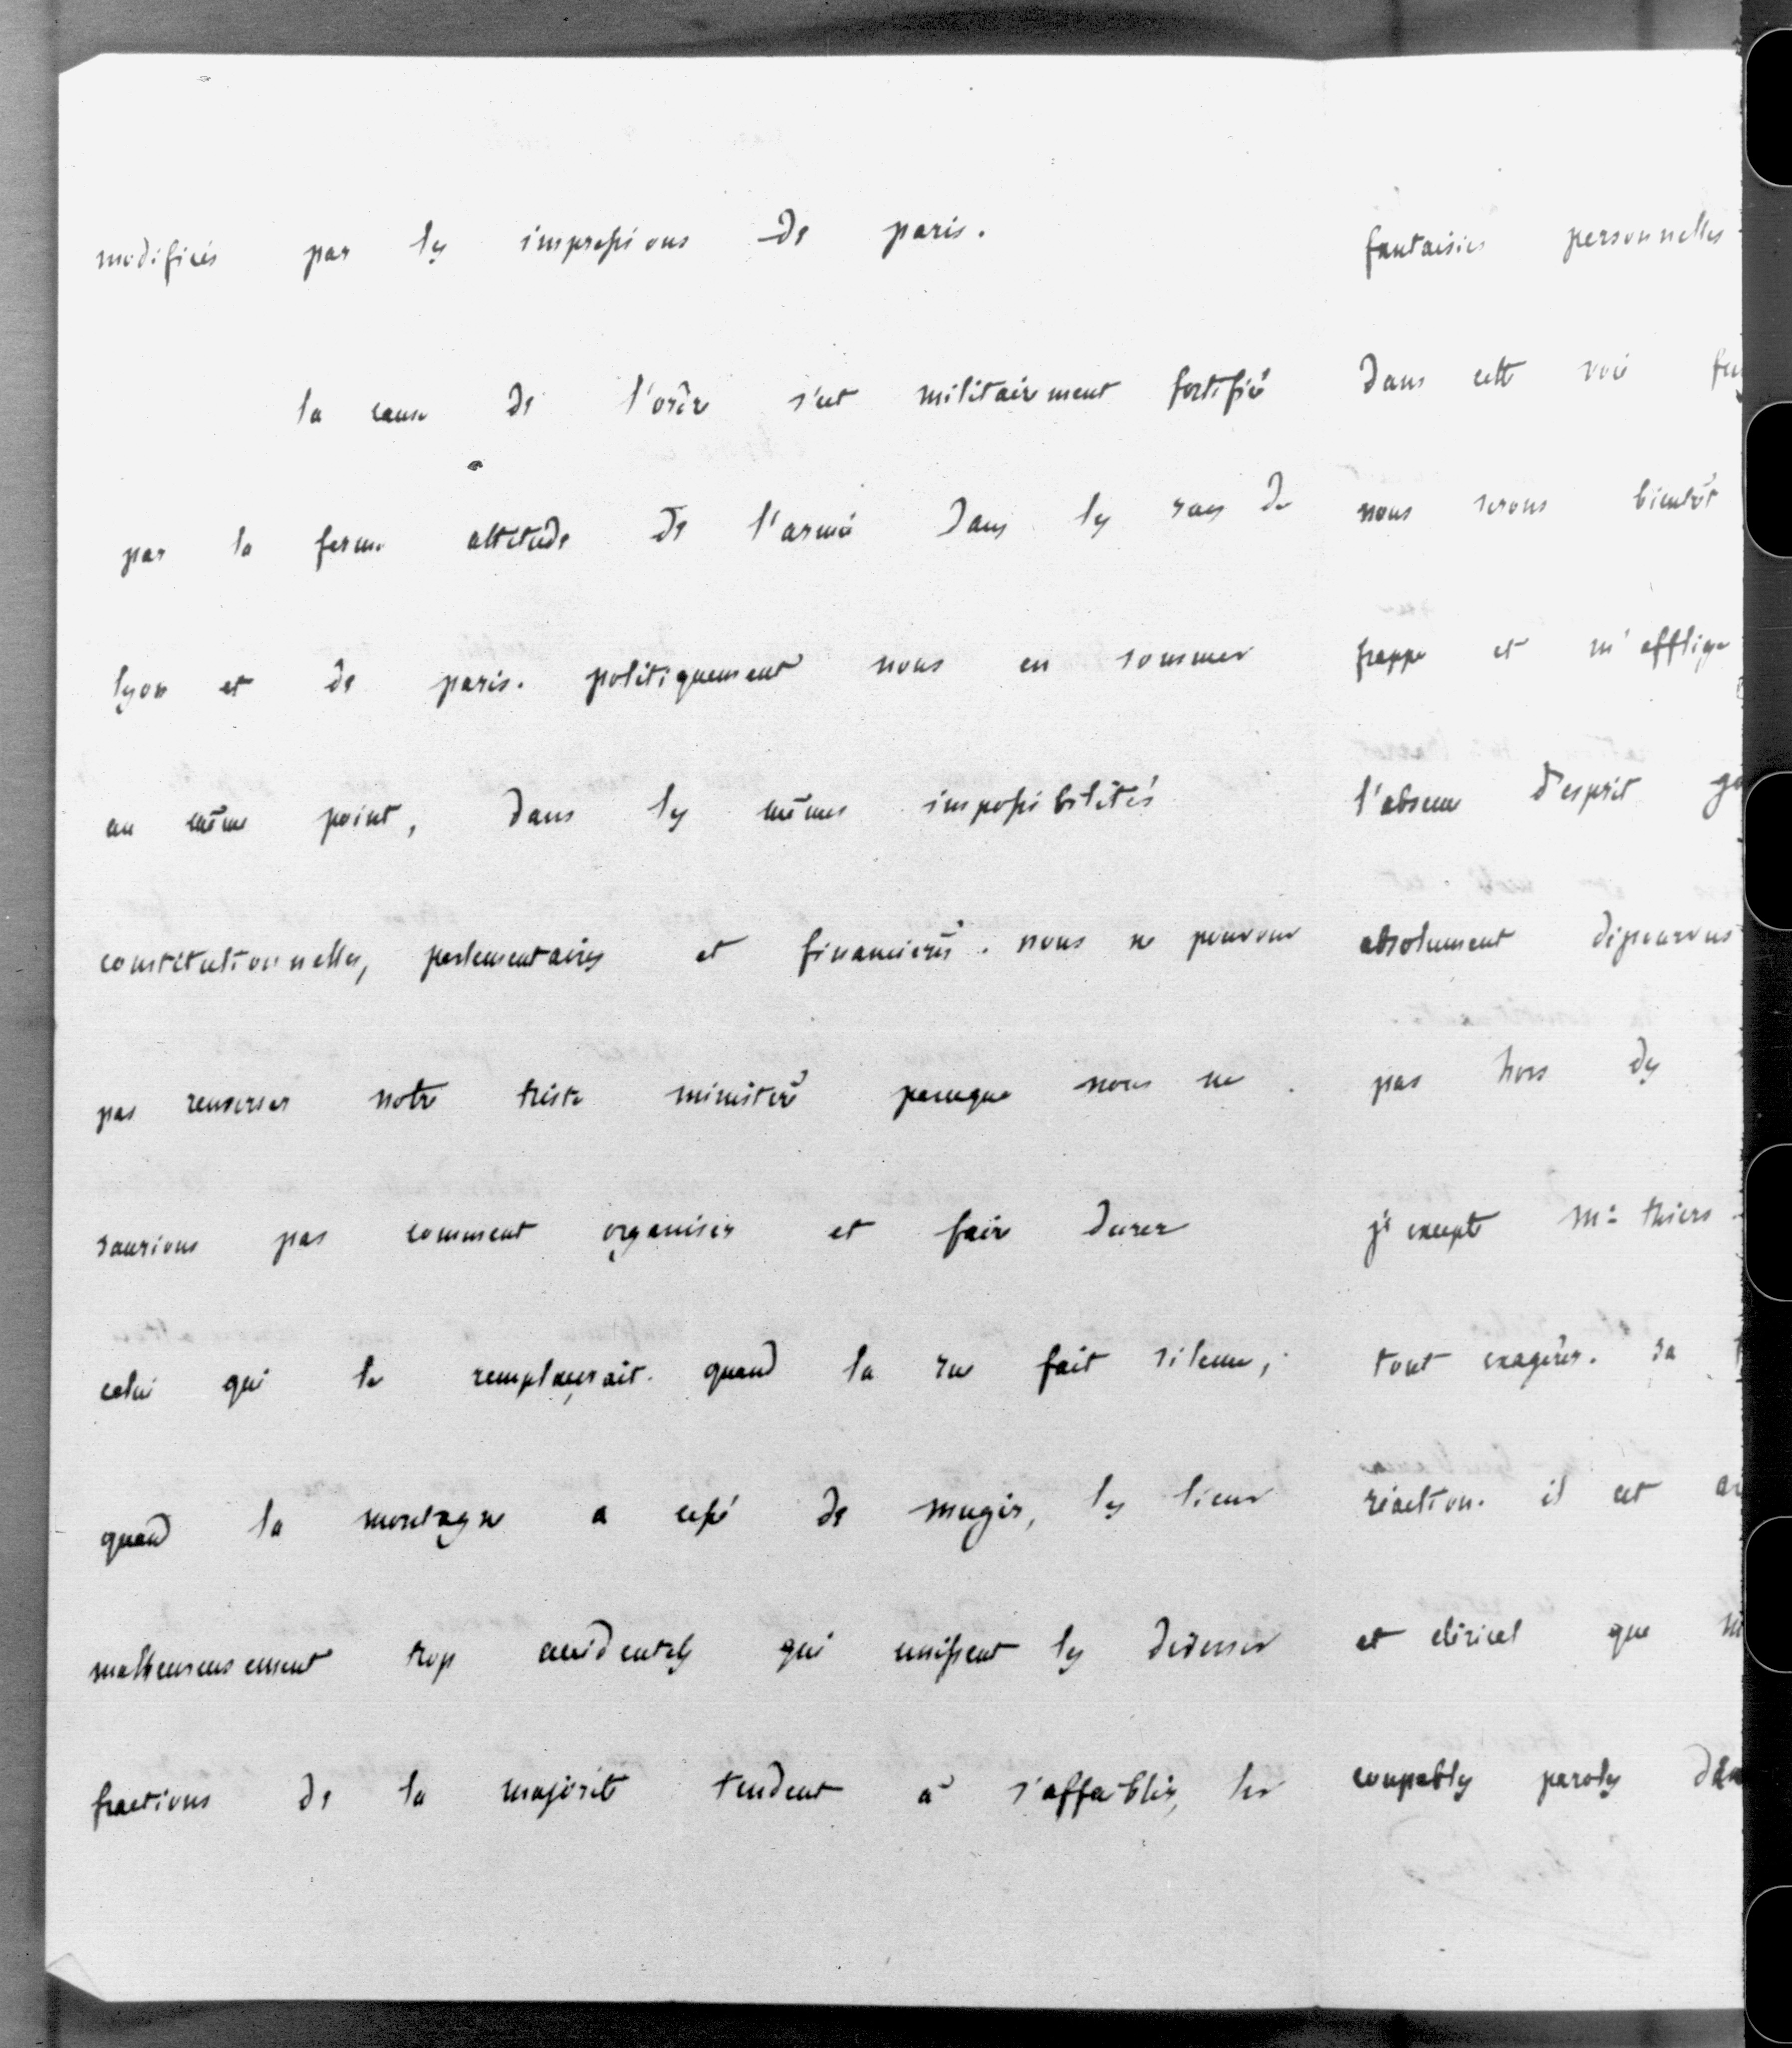 modifiées par les impressions de paris.
la cause de l'ordre s'est militairement fortifiée
par la ferme attitude de l'armée dans les rues de
lyon et de paris. politiquement nous en sommes
au même point, dans les mêmes impossibilités
constitutionnelles, parlementaires et financières. nous ne pouvons
pas renverser notre triste ministère parceque nous ne
saurions pas comment organiser et faire durer
celui qui le remplaçerait. quand la rue fait silence,
quand la montagne a cessé de mugir, les liens
malheureusement trop accidentels qui unissent les diverses
fractions de la majorité tendent à s'affaiblir, les
fantaisies personnelles
dans cette voie
nous serons bientôt
frappe et m'afflige
l'absence d'esprit
absolument dépourvus
pas hors des
j'excepte Mr thiers
tout exagérer. sa
réaction. il est
et clérical que
coupables paroles